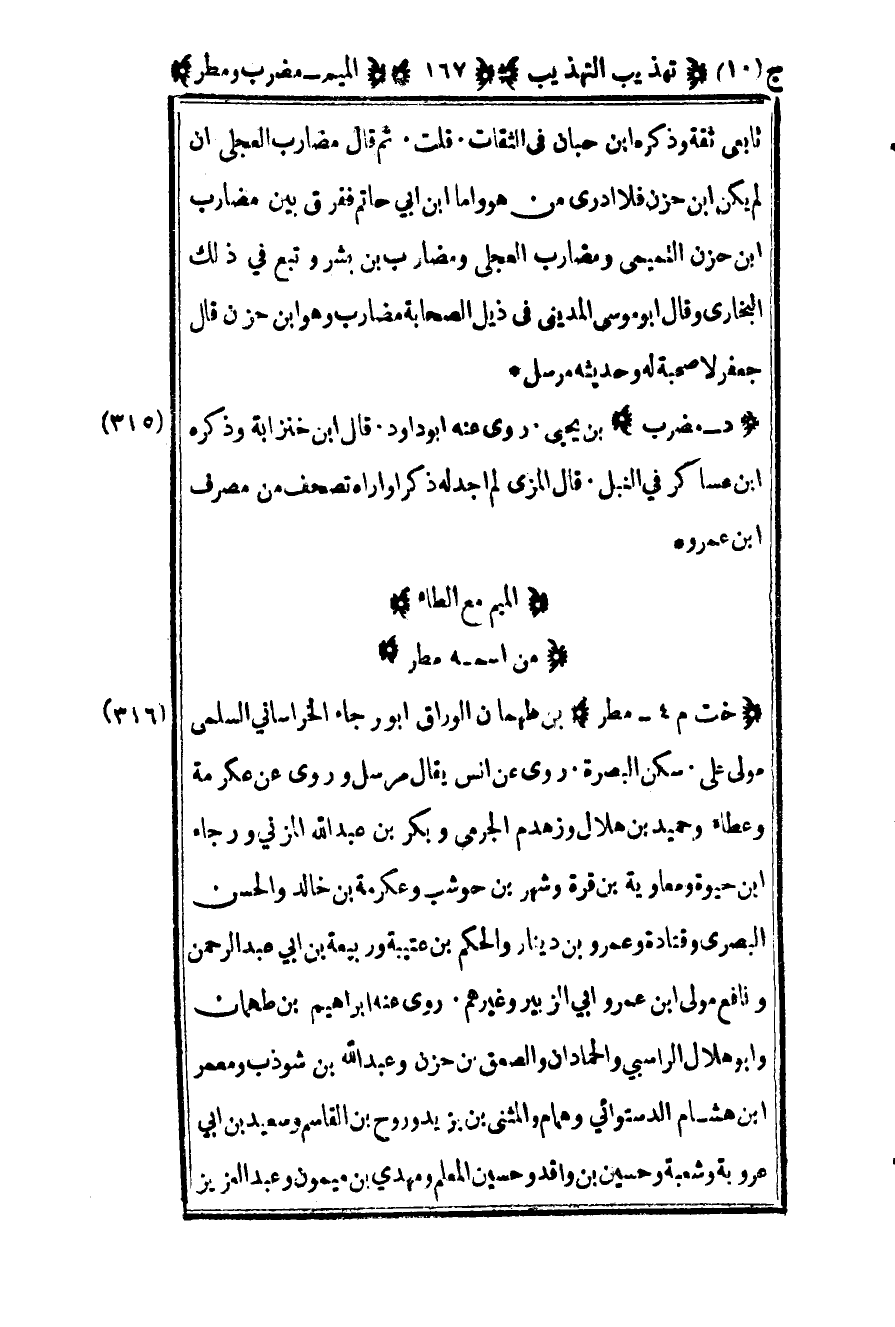 ج (١٠) ﴿ تهذيب التهذيب ﴾ ﴿ ١٦٧ ﴾ ﴿ الميم ـ مضرب ومطر ﴾
تابعى ثقة وذكره ابن حبان فى الثقات ٠ قلت ٠ ثم قال مضارب العجلى ان
لم يكن ابن حزن فلا ادرى من هو واما ابن ابي حاتم ففرق بين مضارب
ابن حزن التميمى ومضارب العجلى ومضارب بن بشر و تبع في ذلك
البخارى وقال ابو موسى المدينى فى ذيل الصحابة مضارب وهو ابن حزن قال
جعفر لا صحبة له وحديثه مرسل *
﴿ د ـ مضرب ﴾ بن يحيى ٠ روى عنه ابو داود ٠ قال ابن خنزابة وذكره (٣١٥)
ابن عساكر في النبل ٠ قال المزى لم اجد له ذكرا واراه تصحف من مصرف
ابن عمرو *
﴿ الميم مع الطاء ﴾
﴿ من اسمه مطر ﴾
﴿ خت م ٤ ـ مطر ﴾ بن طهمان الوراق ابو رجاء الخراساني السلمى (٣١٦)
مولى على ٠ سكن البصرة ٠ روى عن انس يقال مرسل و روى عن عكرمة
وعطاء وحميد بن هلال وزهدم الجرمي و بكر بن عبد الله المزني و رجاء
ابن حيوة ومعاوية بن قرة وشهر بن حوشب وعكرمة بن خالد والحسن
البصرى وقتادة وعمرو بن دينار والحكم بن عتيبة وربيعة بن ابي عبد الرحمن
و نافع مولى ابن عمر و ابي الزبير وغيرهم ٠ روى عنه ابراهيم بن طهمان
وابو هلال الراسبي والحمادان والصعق بن حزن وعبد الله بن شوذب ومعمر
ابن هشام الدستوائي وهمام والمثنى بن يزيد وروح بن القاسم وسعيد بن ابي
عروبة وشعبة وحسين بن واقد وحسين المعلم ومهدي بن ميمون وعبد العزيز